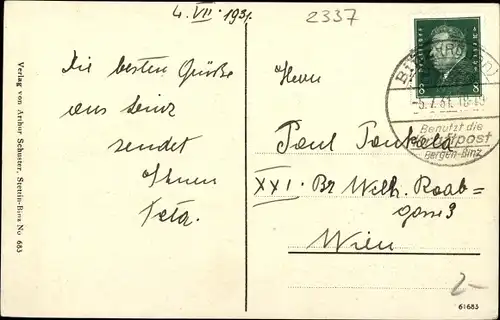 4. VII. 1931.
2337
Die besten Grüße
aus Binz
sendet
Ihnen
Peta.
Verlag von Arthur Schuster, Stettin-Binz No 683
Herrn
Paul
XXI. Br Wilh. Raab-
gasse 3
Wien
DEUTSCHES REICH
8 8
BINZ (RÜGEN)
-5.7.31. 18-19
Benutzt die
Kraftpost
Bergen-Binz
2-
61683